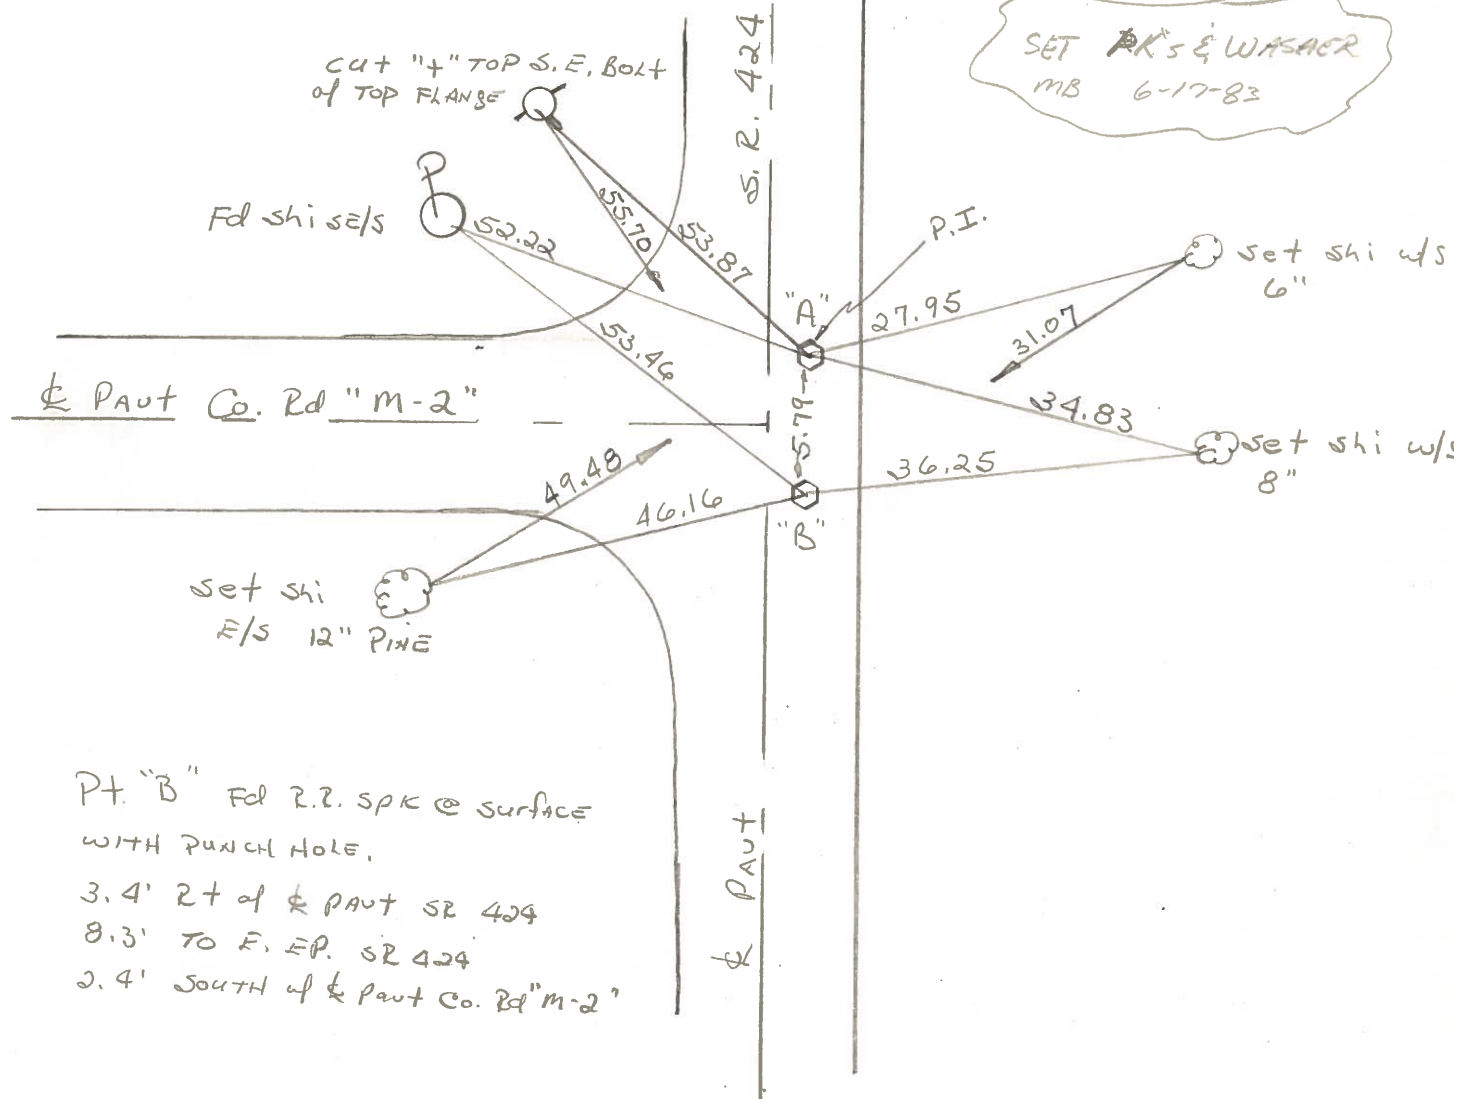 SET PK's & WASHER
MB 6-17-83
cut "+" TOP S.E. BOLT
of TOP FLANGE
S.R. 424
P
Fd shi SE/S
52.22
55.70
53.87
P.I.
"A"
27.95
set shi w/s
6"
31.07
53.46
℄ PAvt Co. Rd "M-2"
5.79
34.83
set shi w/s
8"
36.25
49.48
46.16
"B"
set shi
E/S 12" PINE
Pt. "B" Fd R.R. SPK @ surfACE
WITH PUNCH HOLE.
3.4' Rt of ℄ PAvt SR 424
8.3' TO E. EP. SR 424
2.4' SOUTH of ℄ Pavt Co. Rd "M-2"
℄ PAvt